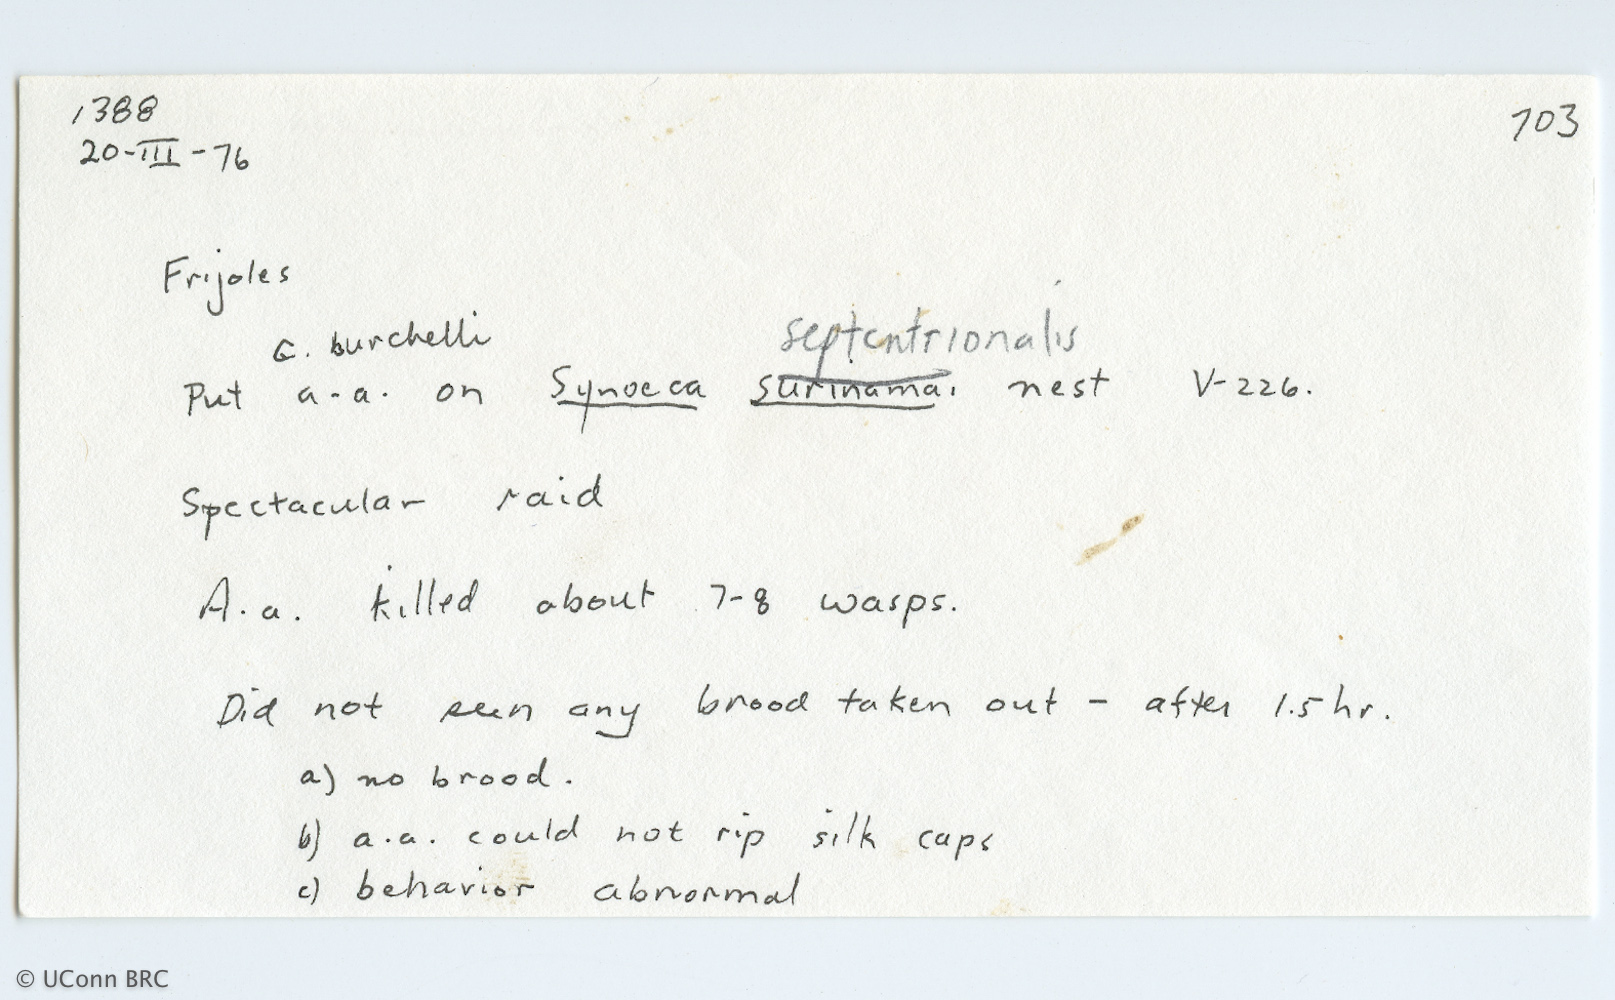 1388
703
20-III-76
Frijoles
E. burchelli
septentrionalis
Put a.a. on Synoeca surinama nest V-226.
Spectacular raid
A.a. killed about 7-8 wasps.
Did not seen any brood taken out - after 1.5 hr.
a) no brood.
b) a.a. could not rip silk caps
c) behavior abnormal
© UConn BRC